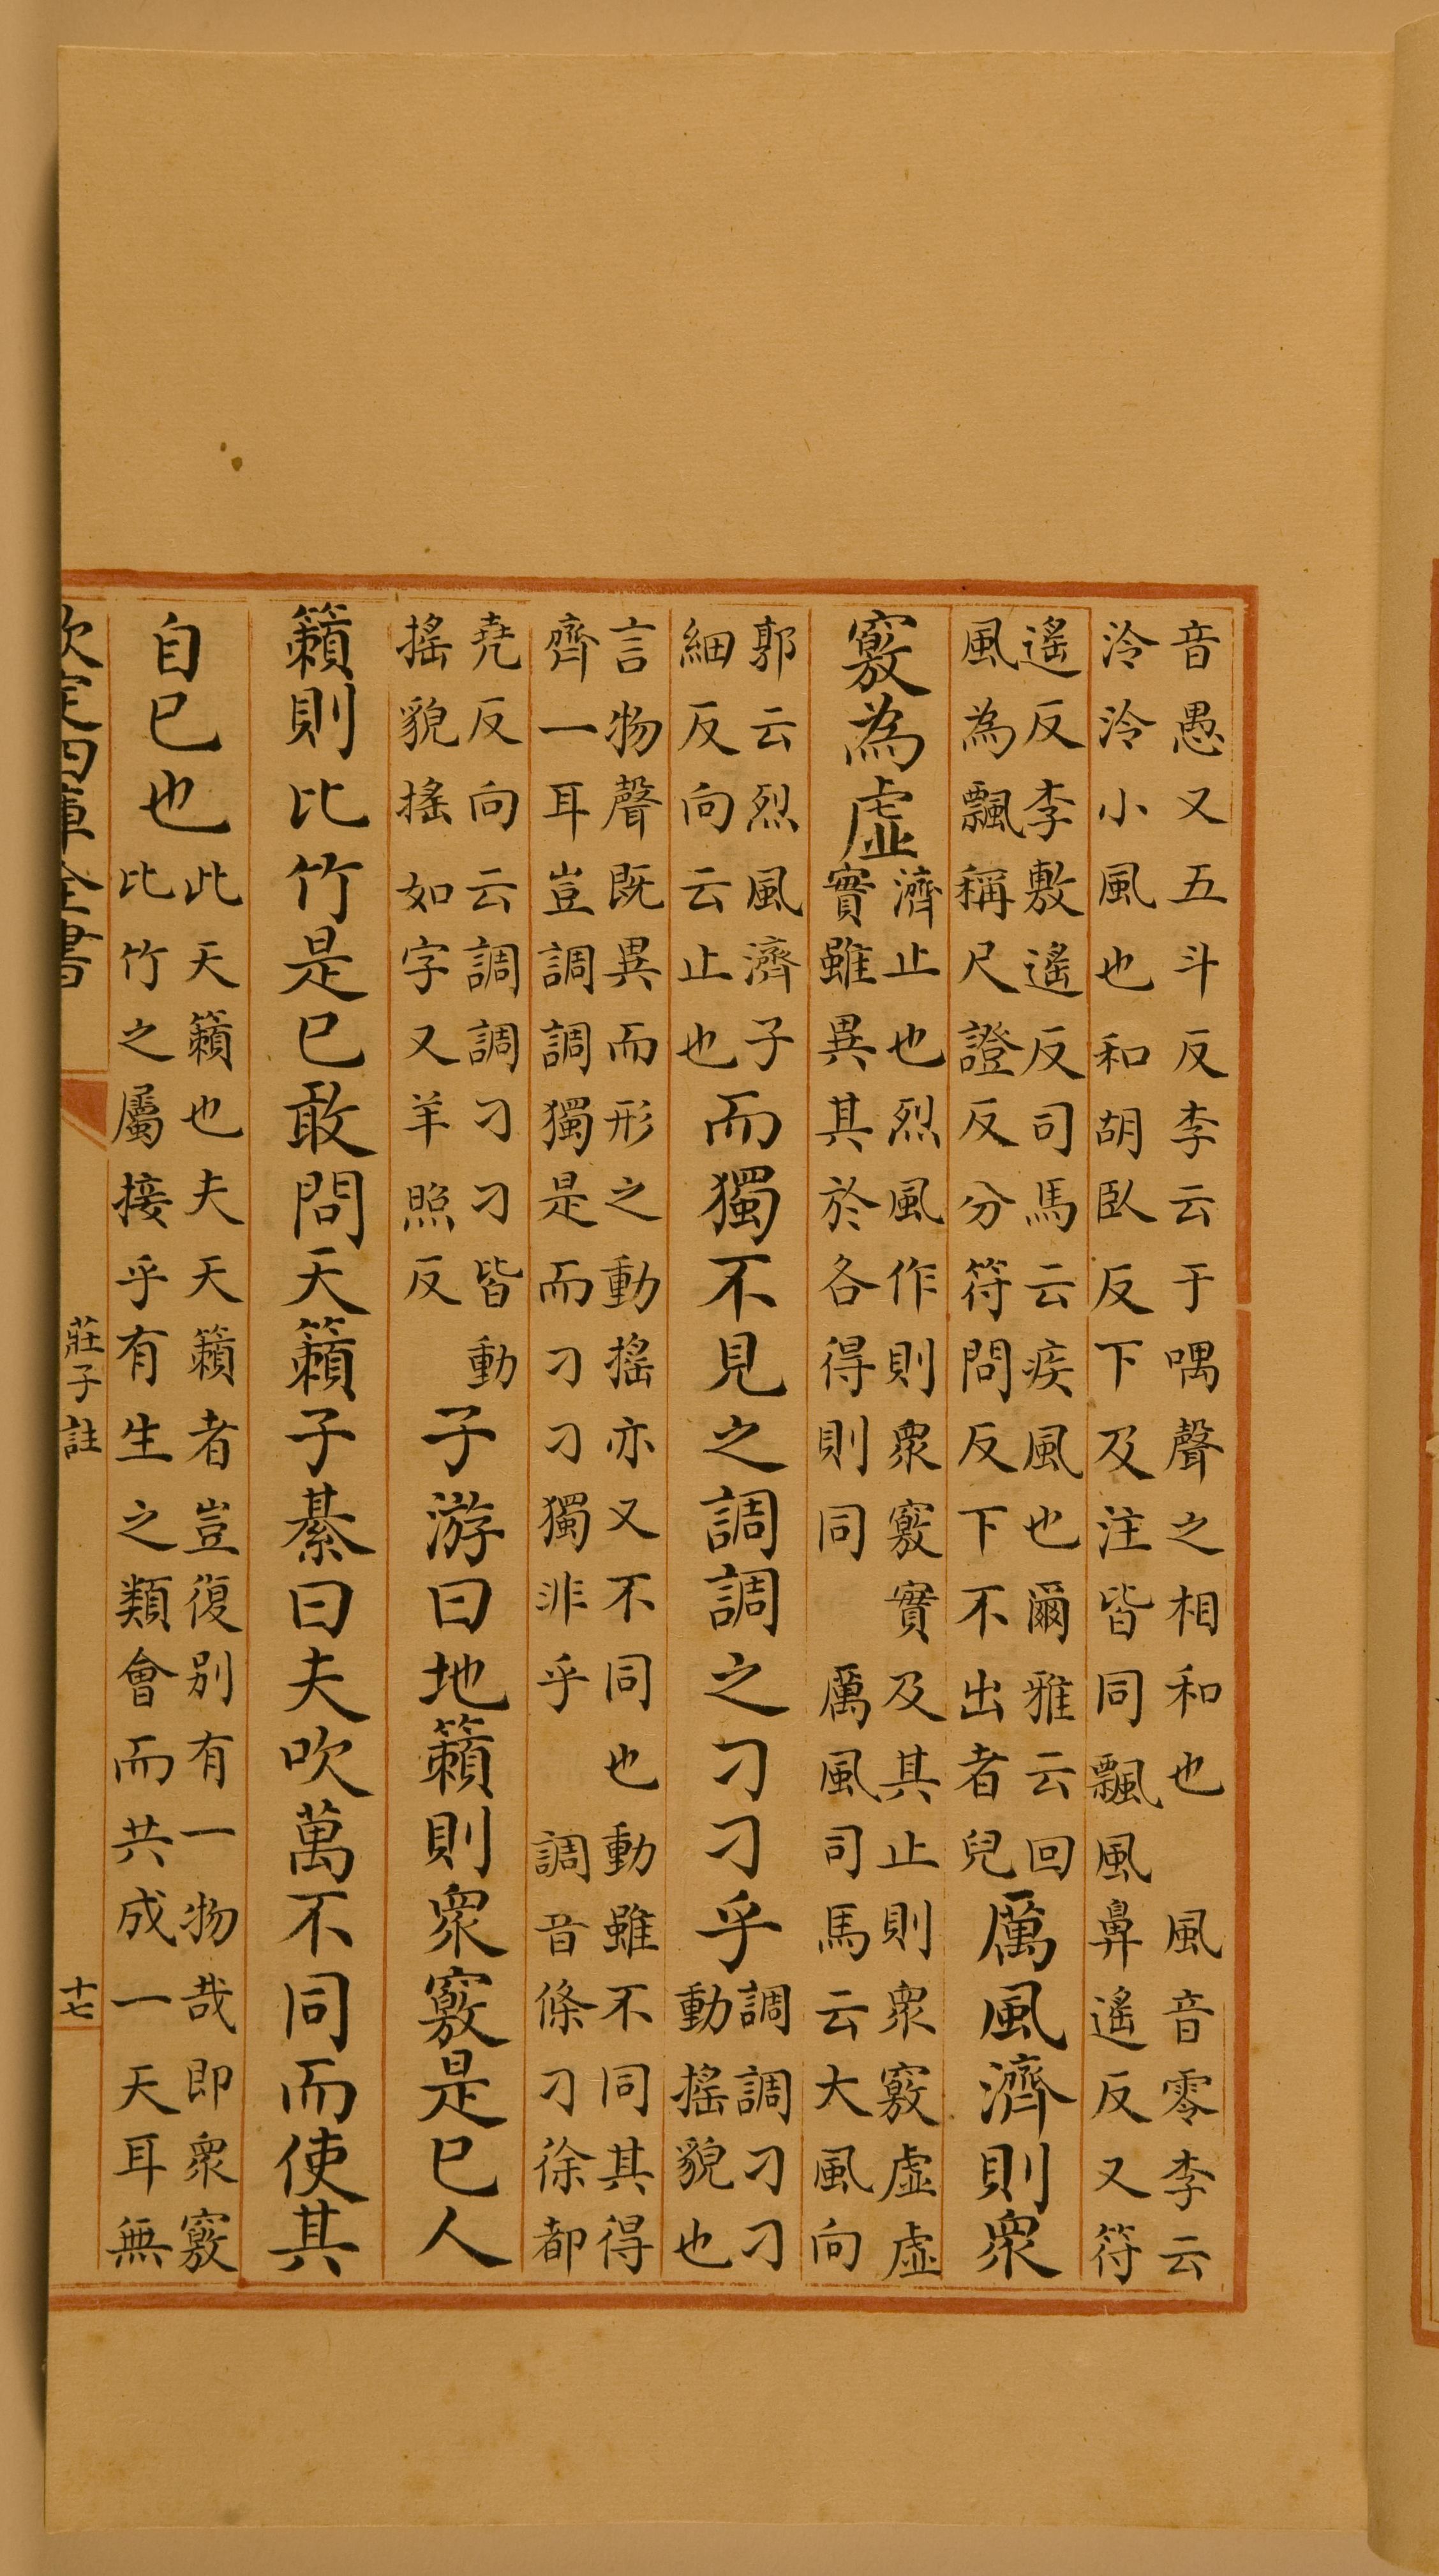 音愚又五斗反李云于喁聲之相和也　風音零李云
泠泠小風也和胡臥反下及注皆同飄風鼻遙反又符
遙反李敷遙反司馬云疾風也爾雅云回
風為飄稱尺證反分符問反下不出者兒
厲風濟則衆
竅為虛
濟止也烈風作則衆竅實及其止則衆竅虛虛
實雖異其於各得則同　厲風司馬云大風向
郭云烈風濟子
細反向云止也
而獨不見之調調之刁刁乎
調調刁刁
動搖貌也
言物聲既異而形之動搖亦又不同也動雖不同其得
齊一耳豈調調獨是而刁刁獨非乎　調音條刁徐都
堯反向云調調刁刁皆動
搖貌搖如字又羊照反
子游曰地籟則衆竅是已人
籟則比竹是已敢問天籟子綦曰夫吹萬不同而使其
自已也
此天籟也夫天籟者豈復別有一物哉即衆竅
比竹之屬接乎有生之類會而共成一天耳無
欽定四庫全書
莊子註
十七